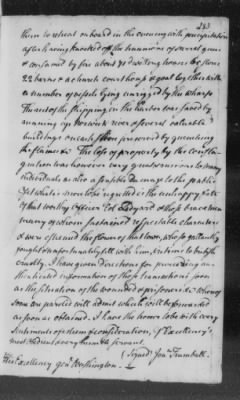 283
them to retreat on board in the evening with precipitation
after having knocked off the trunnions of several guns
& consumed by fire about 71 dwelling houses, 65 stores
22 barns & a church court house & goal, together with
a number of vessels lying unrigged by the wharfs
The rest of the shipping in the harbor was saved by
running up Norwich river & several valuable
buildings on each preserved by quenching
the flames. The loss of property by the confla-
gration was however very great & ruinous to many
individuals as also a sensible damage to the public
Yet what is more to be regretted is the unhappy fate
of that worthy Officer Col. Ledyard & those brave men
many of whom sustained respectable characters
& were esteemed the flower of that town, who so gallantly
fought & unfortunately fell with him, victims to british
cruelty. I have given directions for procuring au-
thenticated information of these transactions soon
as the situation of the wounded & prisoners, some of whom
soon on parole will admit which will be forwarded
as soon as obtained. I have the honor to be with every
sentiments of esteem & consideration, Yr Excellency's
most obedient & very humble servant.
(Signed) Jon Trumbull.
His Excellency Genl. Washington.